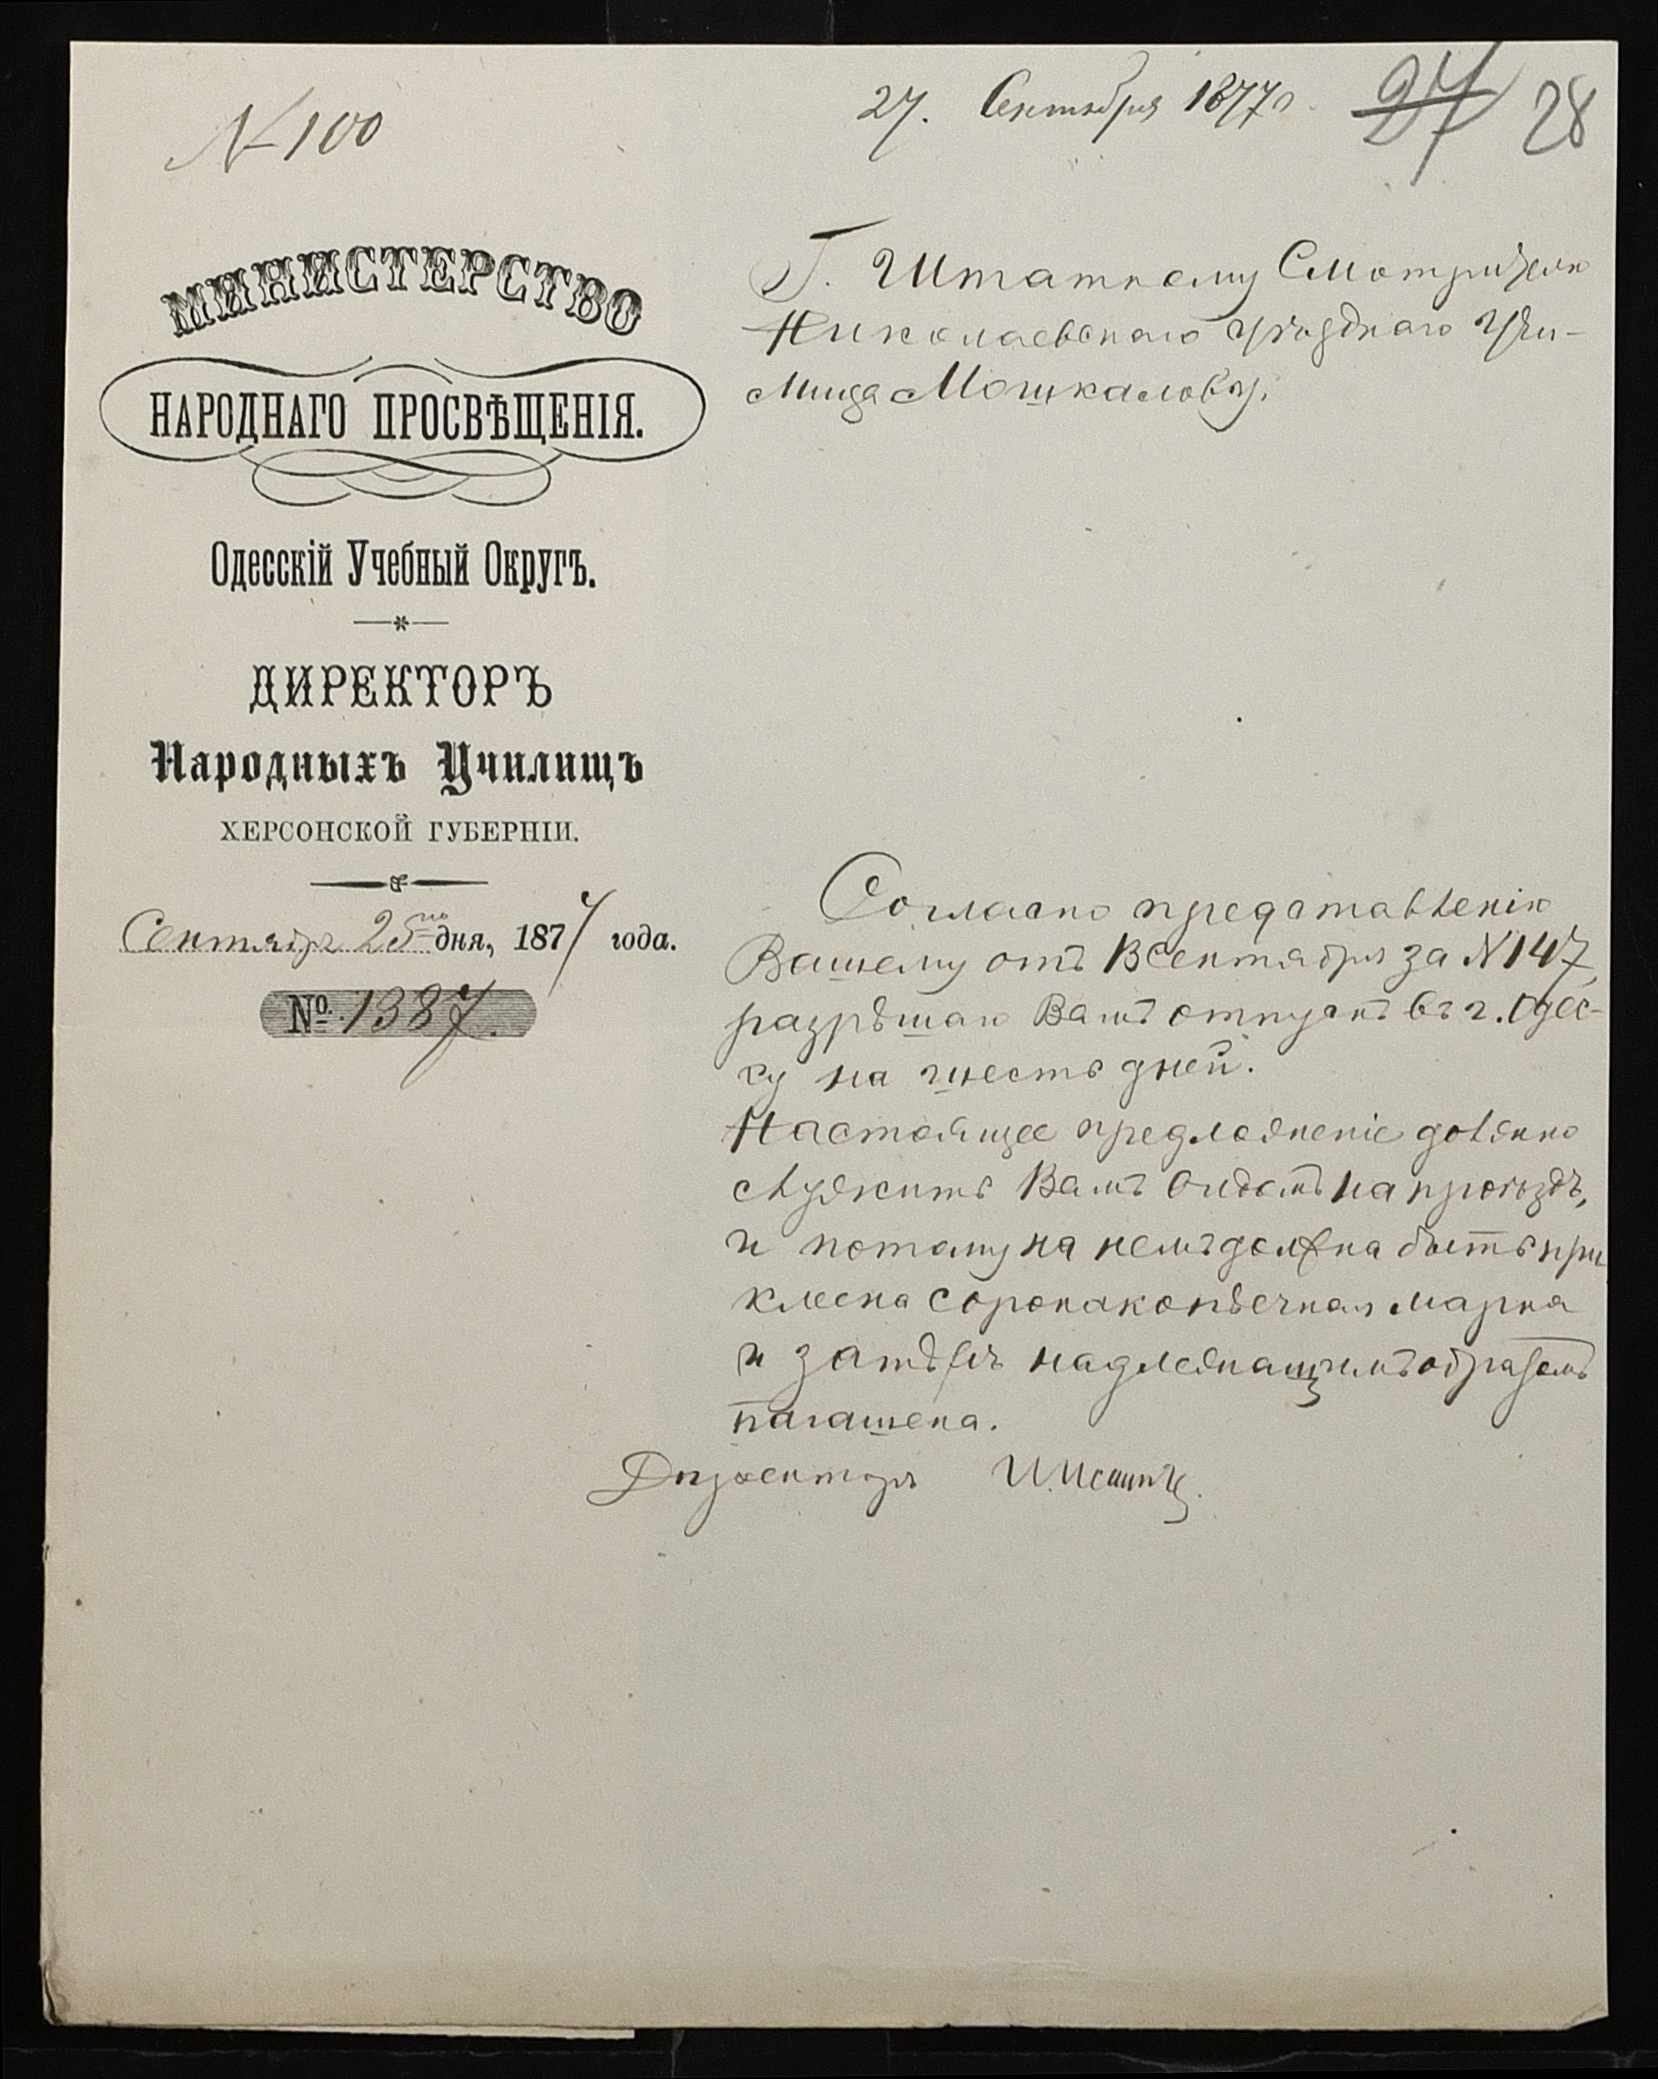 № 100
27. Сентября 1877 г.
27 28
МИНИСТЕРСТВО
НАРОДНАГО ПРОСВѢЩЕНІЯ.
Одесскій Учебный Округъ.
ДИРЕКТОРЪ
Народныхъ Училищъ
ХЕРСОНСКОЙ ГУБЕРНІИ.
Сентября 25го дня, 1877 года.
№ 1387.
Г. Штатному Смотрителю
Николаевскаго уѣзднаго Учи-
лища Мошкалову.
Согласно представленію
Вашему отъ Сентября за № 147,
разрѣшаю Вамъ отпускъ въ г. Одес-
су на шесть дней.
Настоящее предложеніе должно
служить Вамъ видомъ на проѣздъ,
и потому на немъ должна быть при
клеена сорокакопѣечная марка
и затѣмъ надлежащимъ образомъ
погашена.
Директоръ И.